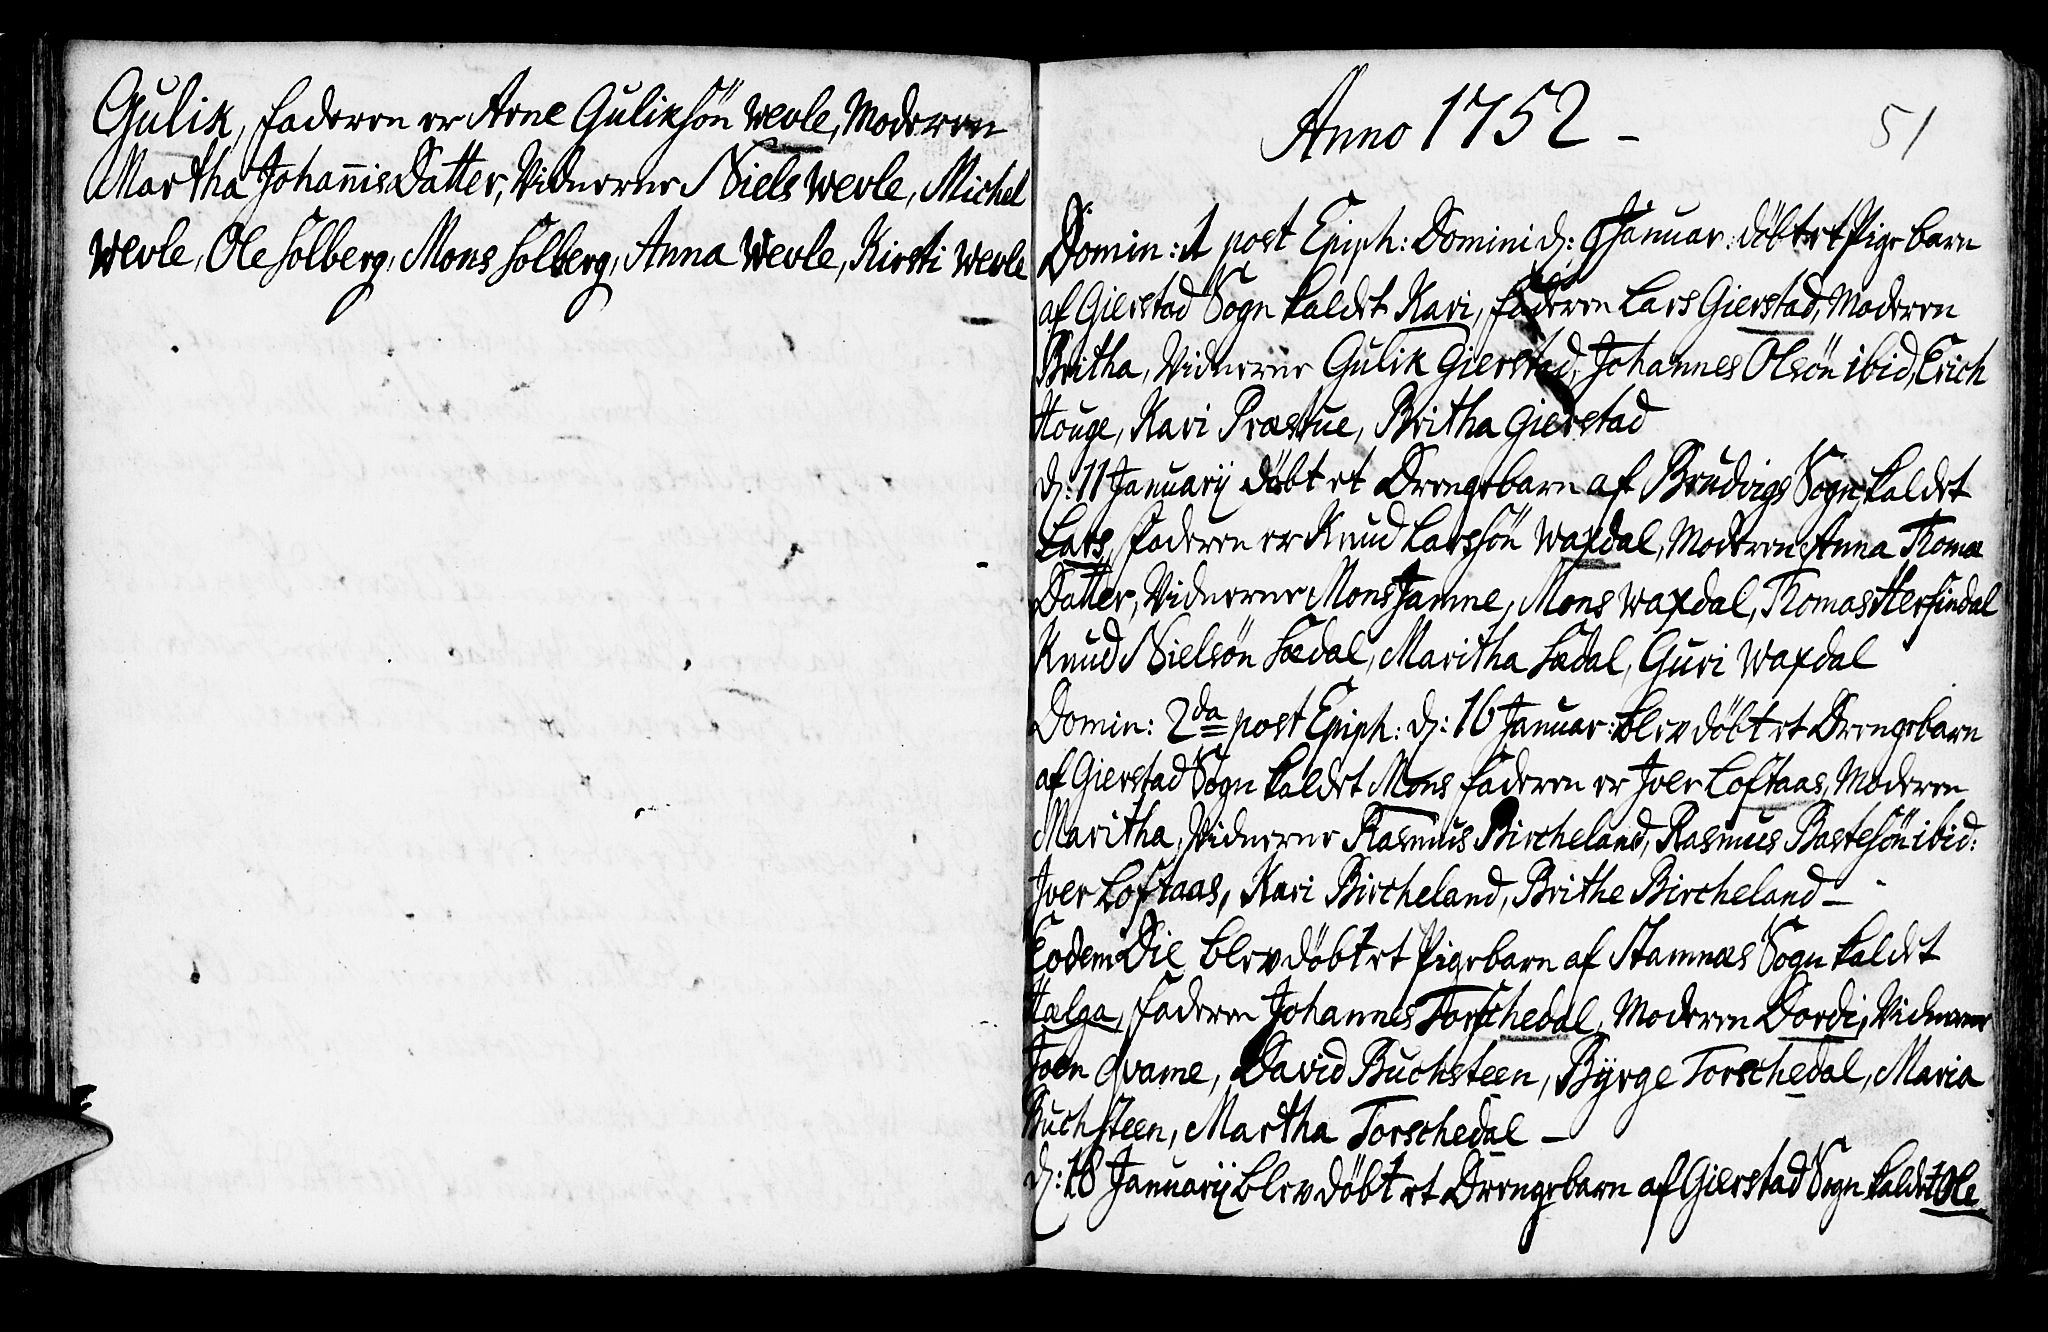 Gulik, faderen er Arne Guliksön Wevle, Moderen
Martha Johannis Datter, Vidnerne Niels Wevle, Michel
Wevle, Ole Solberg, Mons Solberg, Anna Wevle, Kirsti Wevle
Anno 1752 –
51
Domin: 1 post Epiph: Domini d: 9 Januar: döbt et Pige barn
af Gierstad Sogn kaldet Kari, faderen Lars Gierstad, Moderen
Britha, Vidnerne Gulik Gierstad, Johannes Olsön ibid, Erich
Houge, Kari Præstue, Britha Gierstad
d: 11 Januarij döbt et Drengebarn af Brudvigs Sogn, kaldet
Lars, faderen er Knud Larssön Waxdal, Moderen Anna Thomæ
Datter, Vidnerne Mons Jamne, Mons Waxdal, Thomas Hersindal
Knud Nielsön Sædal, Maritha Sædal, Guri Waxdal
Domin: 2da post Epiph: d: 16 Januar: blev döbt et Drengebarn
af Gierstad Sogn kaldet Mons faderen er Iver Loftaas, Moderen
Maritha, Vidnerne Rasmus Bircheland, Rasmus Bastesön ibid:
Iver Loftaas, Kari Bircheland, Brithe Bircheland –
Eodem Die blev döbt et Pigebarn af Stamnæs Sogn kaldet
Hælga, faderen Johannes Torschedal, Moderen Dordi, Vidnerne
Joen Qvame, David Buchsteen, Byrge Torschedal, Maria
Buchsteen, Martha Torschedal –
d: 18 Januarij blev döbt et Drengebarn af Gierstad Sogn kaldet Ole